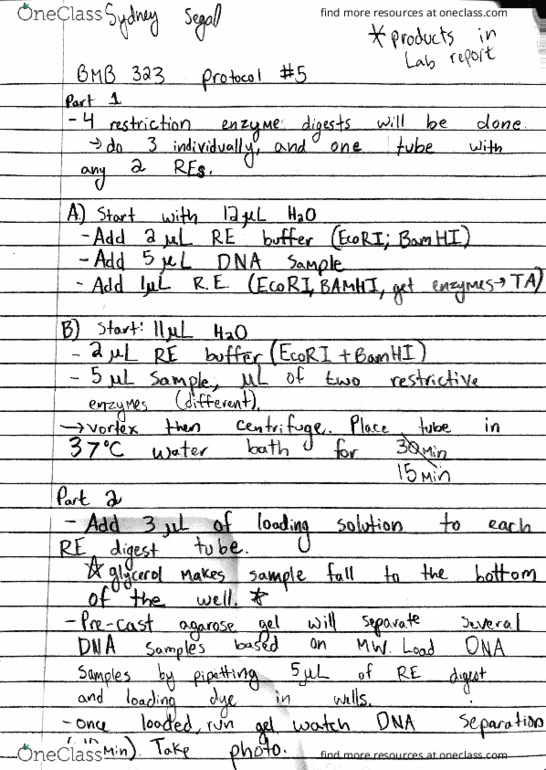 OneClass
Sydney Segal
find more resources at oneclass.com
* products in
Lab report
BMB 323 Protocol #5
Part 1
- 4 restriction enzyme digests will be done.
→ do 3 individually, and one tube with
any 2 REs.
A) Start with 12 µL H2O
- Add 2 µL RE buffer (EcoRI; BamHI)
- Add 5 µL DNA sample
- Add 1µL R.E. (EcoRI, BAMHI, get enzymes→ TA)
B) Start: 11µL H2O
- 2 µL RE buffer (EcoRI + BamHI)
- 5 µL sample, µL of two restrictive
enzymes (different),
→ vortex then centrifuge. Place tube in
37°C water bath for 30 min
15 min
Part 2
- Add 3 µL of loading solution to each
RE digest tube.
☆ glycerol makes sample fall to the bottom
of the well. *
- Pre-cast agarose gel will separate several
DNA samples based on MW. Load DNA
samples by pipetting 5µL of RE digest
and loading dye in wells.
- once loaded, run gel watch DNA separation
min). Take photo.
OneClass
find more resources at oneclass.com